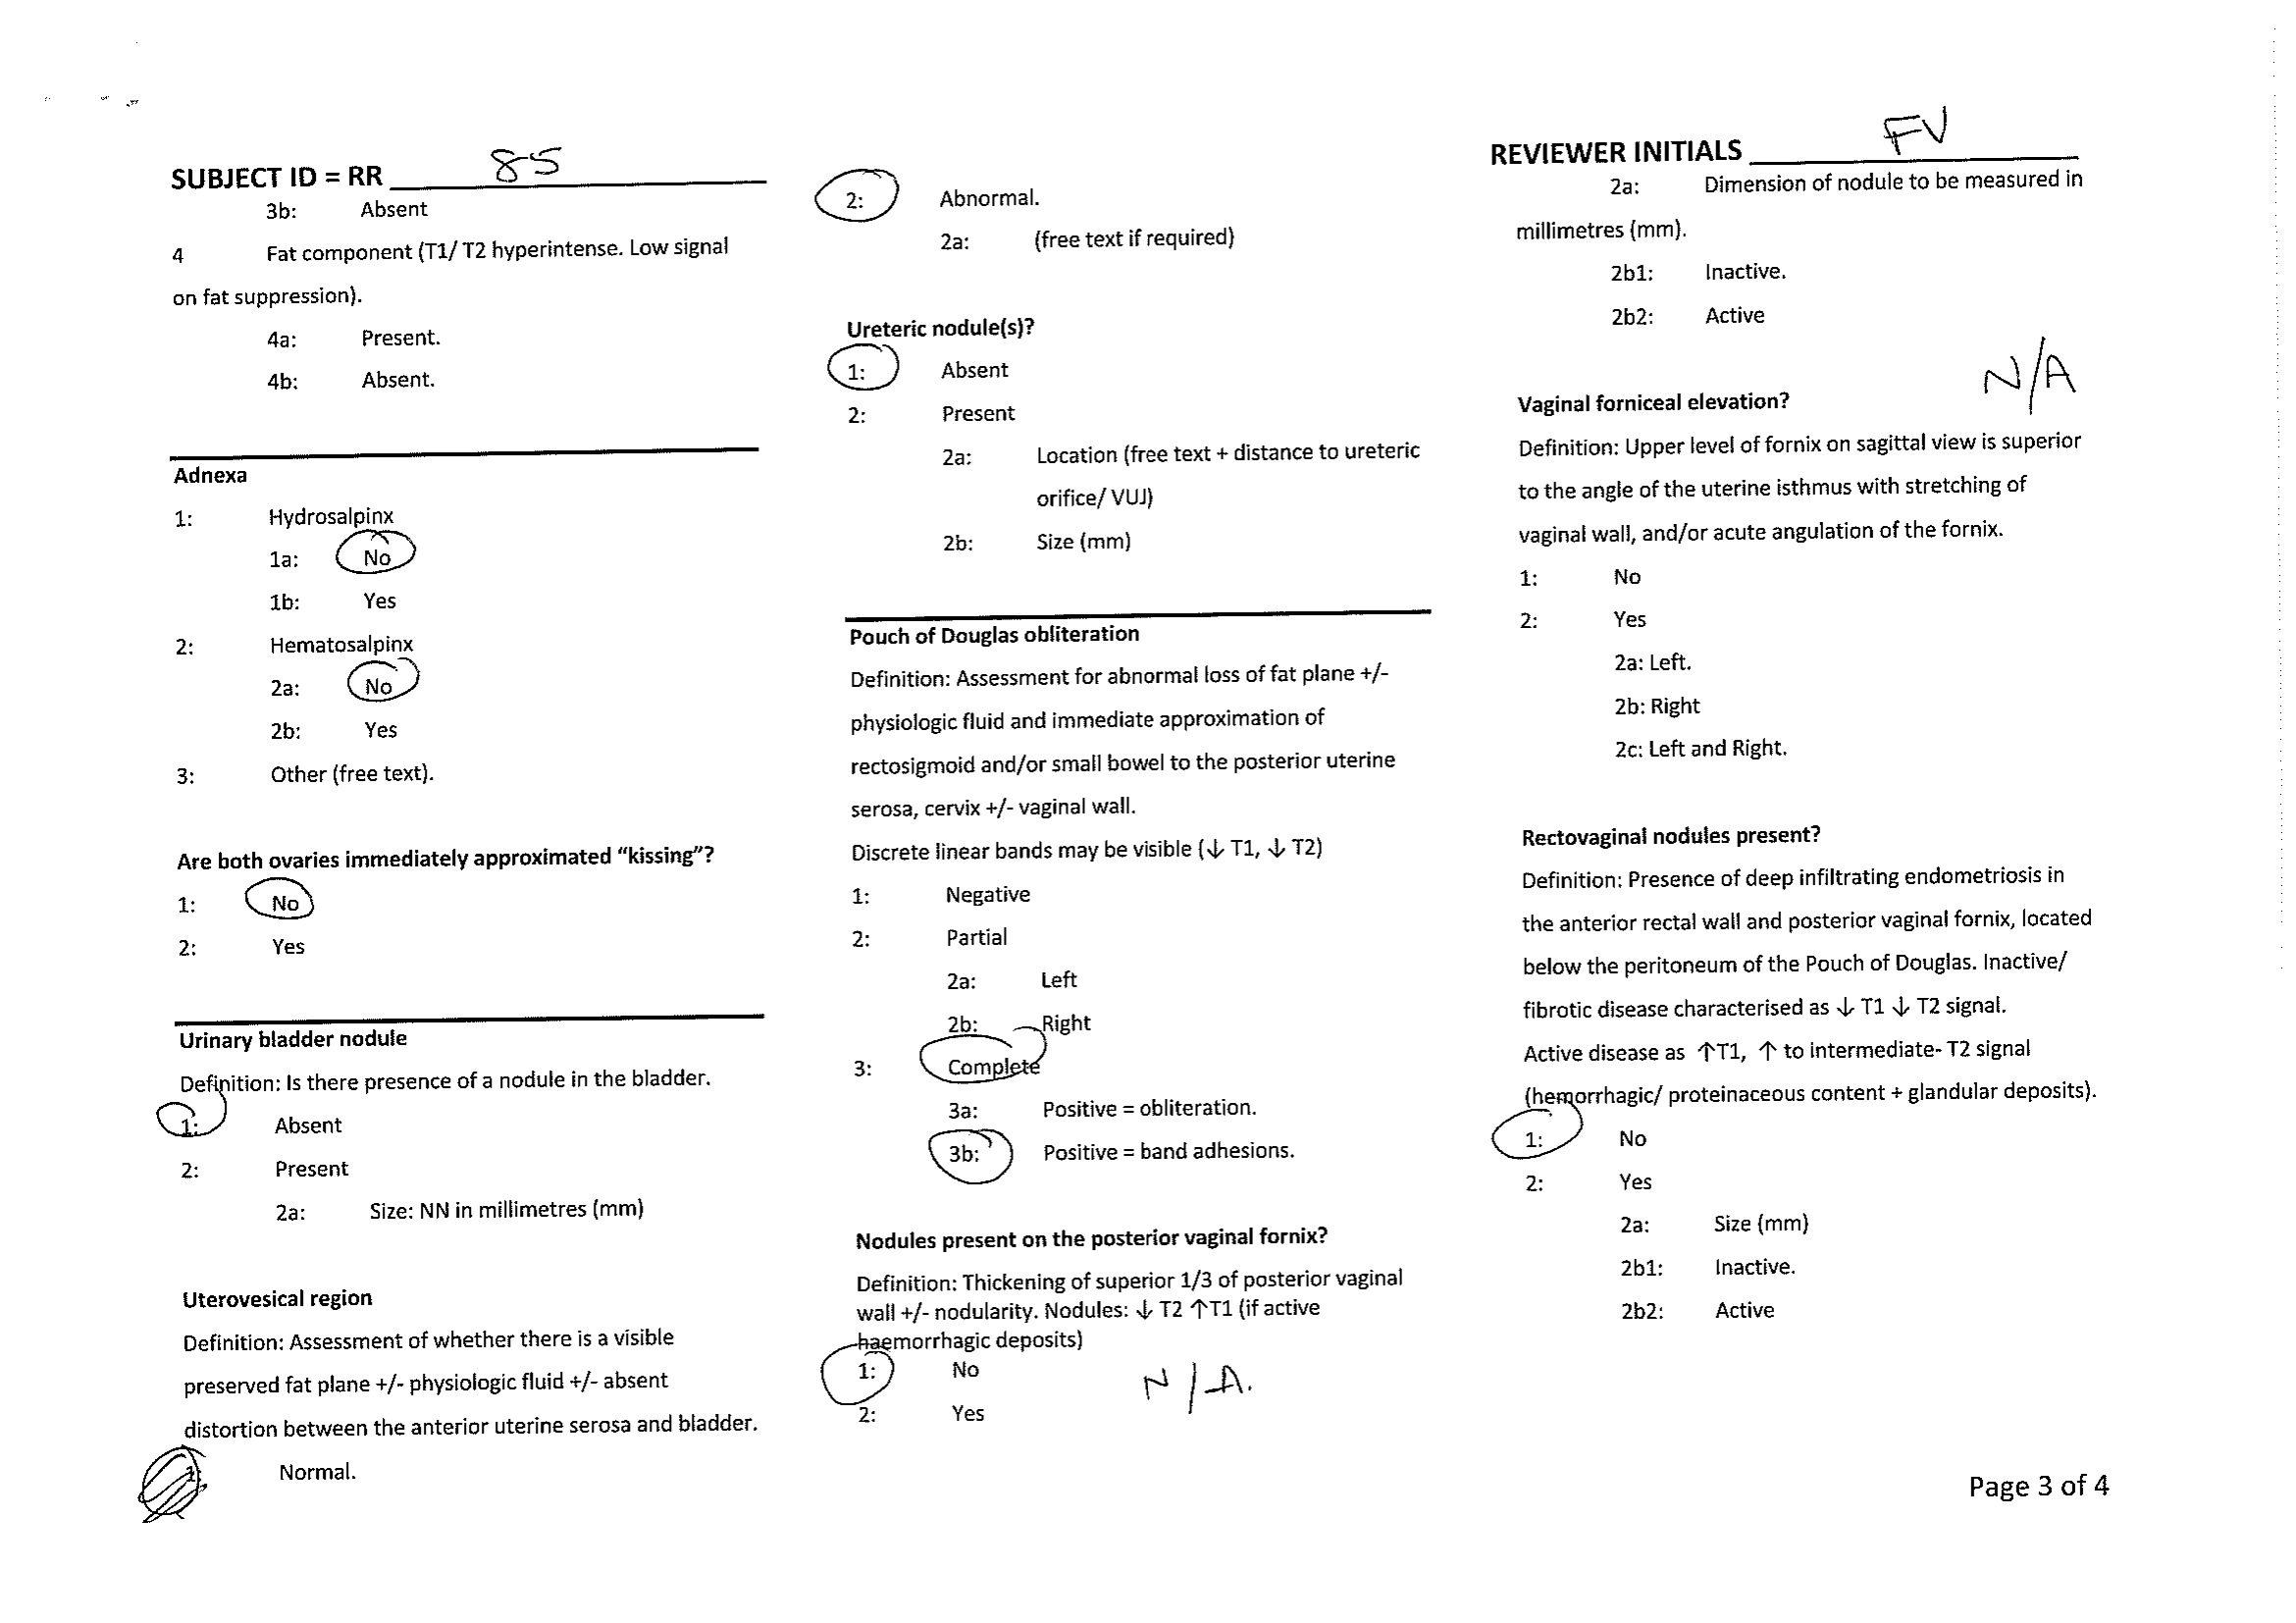 SUBJECT ID = RR 85
3b: Absent
4 Fat component (T1/ T2 hyperintense. Low signal
on fat suppression).
4a: Present.
4b: Absent.
Adnexa
1: Hydrosalpinx
1a: No
1b: Yes
2: Hematosalpinx
2a: No
2b: Yes
3: Other (free text).
Are both ovaries immediately approximated “kissing”?
1: No
2: Yes
Urinary bladder nodule
Definition: Is there presence of a nodule in the bladder.
1: Absent
2: Present
2a: Size: NN in millimetres (mm)
Uterovesical region
Definition: Assessment of whether there is a visible
preserved fat plane +/- physiologic fluid +/- absent
distortion between the anterior uterine serosa and bladder.
1: Normal.
2: Abnormal.
2a: (free text if required)
Ureteric nodule(s)?
1: Absent
2: Present
2a: Location (free text + distance to ureteric
orifice/ VUJ)
2b: Size (mm)
Pouch of Douglas obliteration
Definition: Assessment for abnormal loss of fat plane +/-
physiologic fluid and immediate approximation of
rectosigmoid and/or small bowel to the posterior uterine
serosa, cervix +/- vaginal wall.
Discrete linear bands may be visible (↓ T1, ↓ T2)
1: Negative
2: Partial
2a: Left
2b: Right
3: Complete
3a: Positive = obliteration.
3b: Positive = band adhesions.
Nodules present on the posterior vaginal fornix?
Definition: Thickening of superior 1/3 of posterior vaginal
wall +/- nodularity. Nodules: ↓ T2 ↑T1 (if active
haemorrhagic deposits)
1: No
N/A.
2: Yes
REVIEWER INITIALS FV
2a: Dimension of nodule to be measured in
millimetres (mm).
2b1: Inactive.
2b2: Active
N/A
Vaginal forniceal elevation?
Definition: Upper level of fornix on sagittal view is superior
to the angle of the uterine isthmus with stretching of
vaginal wall, and/or acute angulation of the fornix.
1: No
2: Yes
2a: Left.
2b: Right
2c: Left and Right.
Rectovaginal nodules present?
Definition: Presence of deep infiltrating endometriosis in
the anterior rectal wall and posterior vaginal fornix, located
below the peritoneum of the Pouch of Douglas. Inactive/
fibrotic disease characterised as ↓ T1 ↓ T2 signal.
Active disease as ↑T1, ↑ to intermediate- T2 signal
(hemorrhagic/ proteinaceous content + glandular deposits).
1: No
2: Yes
2a: Size (mm)
2b1: Inactive.
2b2: Active
Page 3 of 4